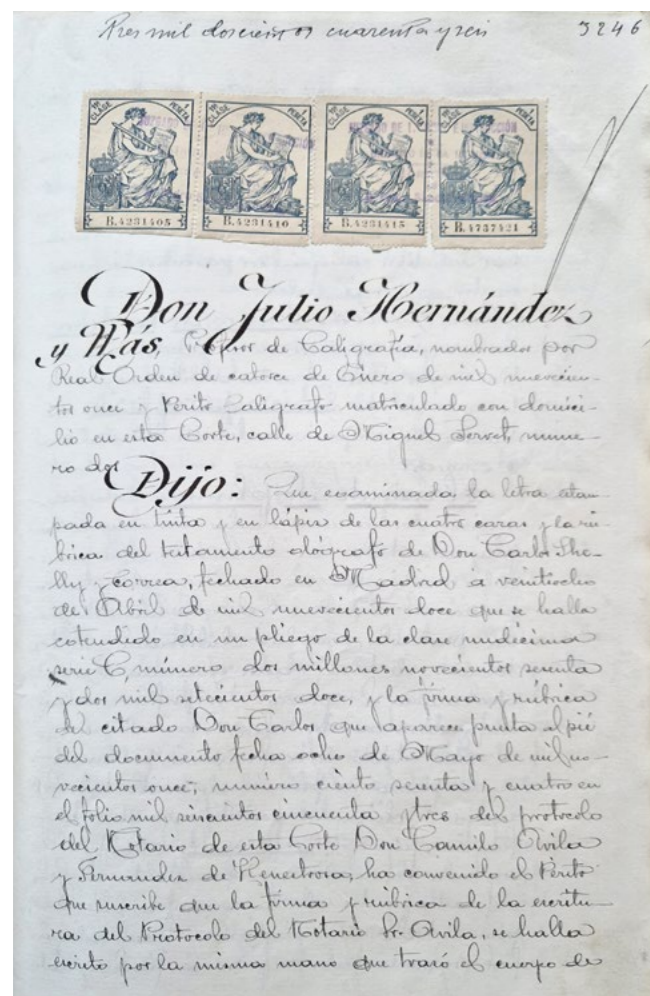 Tres mil doscientos cuarenta y seis 3246
1ª CLASE PESETA 1ª CLASE PESETA 1ª CLASE PESETA 1ª CLASE PESETA
B.4231405 B.4231410 B.4231415 B.4737421
Don Julio Hernández
y Más, Profesor de Caligrafía, nombrado por
Real Orden de catorce de Enero de mil novecien-
tos once y Perito Caligrafo matriculado con domici-
lio en esta Corte, calle de Miguel Servet, nume-
ro dos
Dijo: Que examinada la letra estam-
pada en tinta y en lápiz de las cuatro caras y la rú-
brica del testamento ológrafo de Don Carlos She-
lly y Correa, fechado en Madrid a veintiocho
de Abril de mil novecientos doce que se halla
extendido en un pliego de la clase undécima
serie C, número dos millones novecientos sesenta
y dos mil setecientos doce, y la firma y rúbrica
del citado Don Carlos que aparece puesta al pié
del documento fecha ocho de Mayo de mil no-
vecientos once, número ciento sesenta y cuatro en
el folio mil seiscientos cincuenta y tres del protocolo
del Notario de esta Corte Don Camilo Avila
y Fernandez de Henestrosa, ha convenido el Perito
que suscribe que la firma y rúbrica de la escritu-
ra del Protocolo del Notario Sr. Avila, se halla
escrito por la misma mano que trazó el cuerpo de